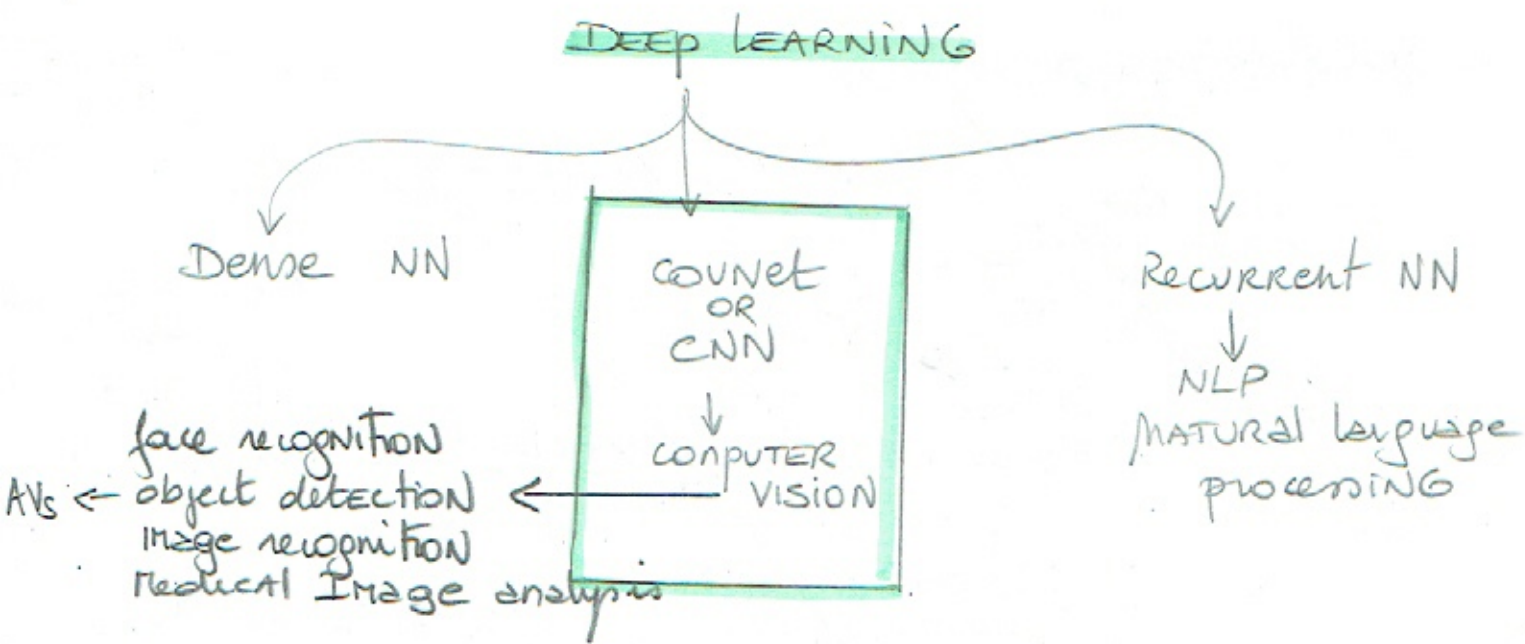 DEEP LEARNING
Dense NN
COUNet
OR
CNN
COMPUTER
VISION
Recurrent NN
NLP
NATURAL language
processing
face recognition
AVs ← object detection
Image recognition
Medical Image analysis